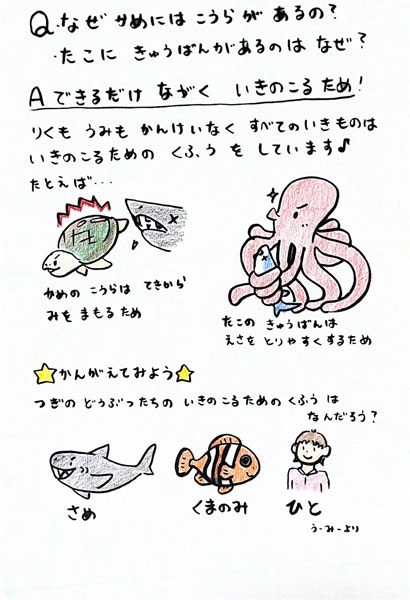 Q.なぜ かめには こうらが あるの?
・たこに きゅうばんがあるのは なぜ?
A できるだけ ながく いきのこる ため!
りくも うみも かんけいなく すべてのいきものは
いきのこるための くふう を しています♪
たとえば…
かめの こうらは てきから
みを まもる ため
たこの きゅうばんは
えさを とりやすくするため
かんがえてみよう
つぎの どうぶつたちの いきのこるための くふう は
なんだろう?
さめ
くまのみ
ひと
うーみーより